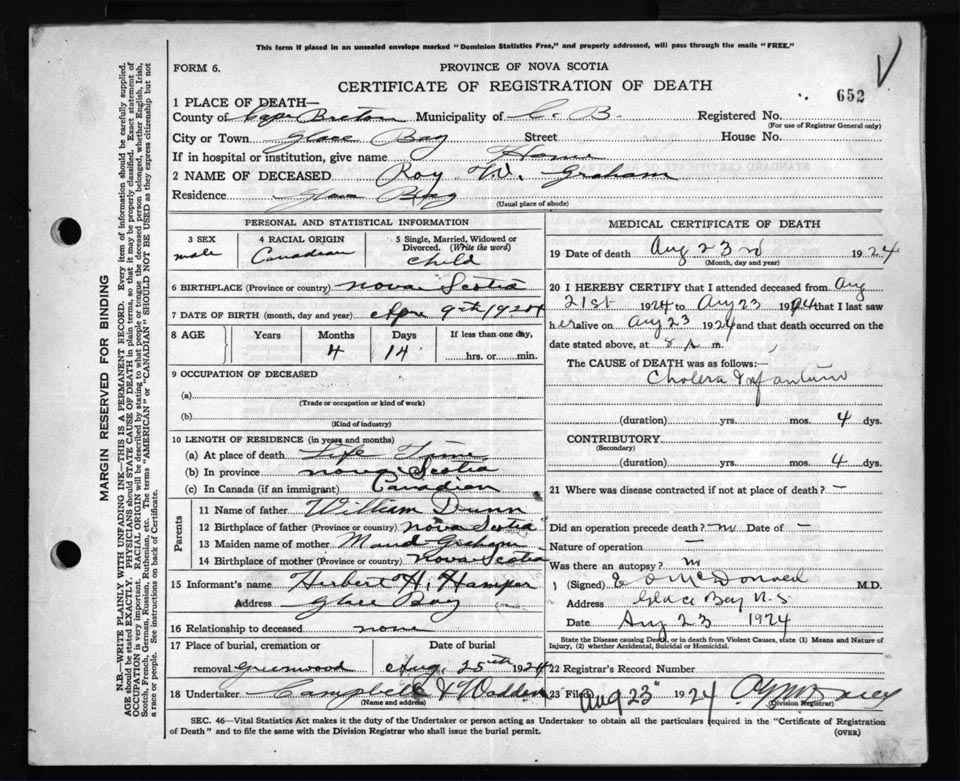 This form if placed in an unsealed envelope marked "Dominion Statistics Free," and properly addressed, will pass through the mails "FREE."
V
652
FORM 6.
PROVINCE OF NOVA SCOTIA
CERTIFICATE OF REGISTRATION OF DEATH
1 PLACE OF DEATH—
County of Cape Breton Municipality of C. B. Registered No.
(For use of Registrar General only)
City or Town Glace Bay Street House No.
If in hospital or institution, give name Home
2 NAME OF DECEASED Roy W. Graham
Residence Glace Bay
(Usual place of abode)
PERSONAL AND STATISTICAL INFORMATION
3 SEX male
4 RACIAL ORIGIN Canadian
5 Single, Married, Widowed or Divorced. (Write the word) child
6 BIRTHPLACE (Province or country) Nova Scotia
7 DATE OF BIRTH (month, day and year) Apr 9th 1924
8 AGE Years Months Days If less than one day,
4 14 hrs. or min.
9 OCCUPATION OF DECEASED
(a)
(Trade or occupation or kind of work)
(b)
(Kind of industry)
10 LENGTH OF RESIDENCE (in years and months)
(a) At place of death Life Time
(b) In province Nova Scotia
(c) In Canada (if an immigrant) Canadian
Parents
11 Name of father William Dunn
12 Birthplace of father (Province or country) Nova Scotia
13 Maiden name of mother Maud Graham
14 Birthplace of mother (Province or country) Nova Scotia
15 Informant's name Herbert H.
Address Glace Bay
16 Relationship to deceased none
17 Place of burial, cremation or removal Greenwood
Date of burial Aug. 25th 1924
18 Undertaker Campbell & Wadden
(Name and address)
MEDICAL CERTIFICATE OF DEATH
19 Date of death Aug 23rd 1924
(Month, day and year)
20 I HEREBY CERTIFY that I attended deceased from Aug
21st 1924 to Aug 23 1924 that I last saw
h er alive on Aug 23 1924 and that death occurred on the
date stated above, at 8 A m.
The CAUSE OF DEATH was as follows:
Cholera Infantum
(duration) yrs. mos. 4 dys.
CONTRIBUTORY
(Secondary)
(duration) yrs. mos. 4 dys.
21 Where was disease contracted if not at place of death? –
Did an operation precede death? no Date of –
Nature of operation –
Was there an autopsy? no
(Signed) McDonald M.D.
Address Glace Bay N.S
Date Aug 23 1924
State the Disease causing Death, or in death from Violent Causes, state (1) Means and Nature of Injury, (2) whether Accidental, Suicidal or Homicidal.
22 Registrar's Record Number
23 Filed Aug 23" 1924
(Division Registrar)
SEC. 46—Vital Statistics Act makes it the duty of the Undertaker or person acting as Undertaker to obtain all the particulars required in the "Certificate of Registration
of Death" and to file the same with the Division Registrar who shall issue the burial permit.
(OVER)
MARGIN RESERVED FOR BINDING
N.B.—WRITE PLAINLY WITH UNFADING INK—THIS IS A PERMANENT RECORD. Every item of information should be carefully supplied.
AGE should be stated EXACTLY. PHYSICIANS should STATE CAUSE OF DEATH in plain terms, so that it may be properly classified. Exact statement of
OCCUPATION is very important. RACIAL ORIGIN will be described by stating to what people or tongue the deceased person belonged, whether English, Irish,
Scotch, French, German, Russian, Ruthenian, etc. The terms "AMERICAN" or "CANADIAN" SHOULD NOT BE USED as they express citizenship but not
a race or people. See instructions on back of Certificate.